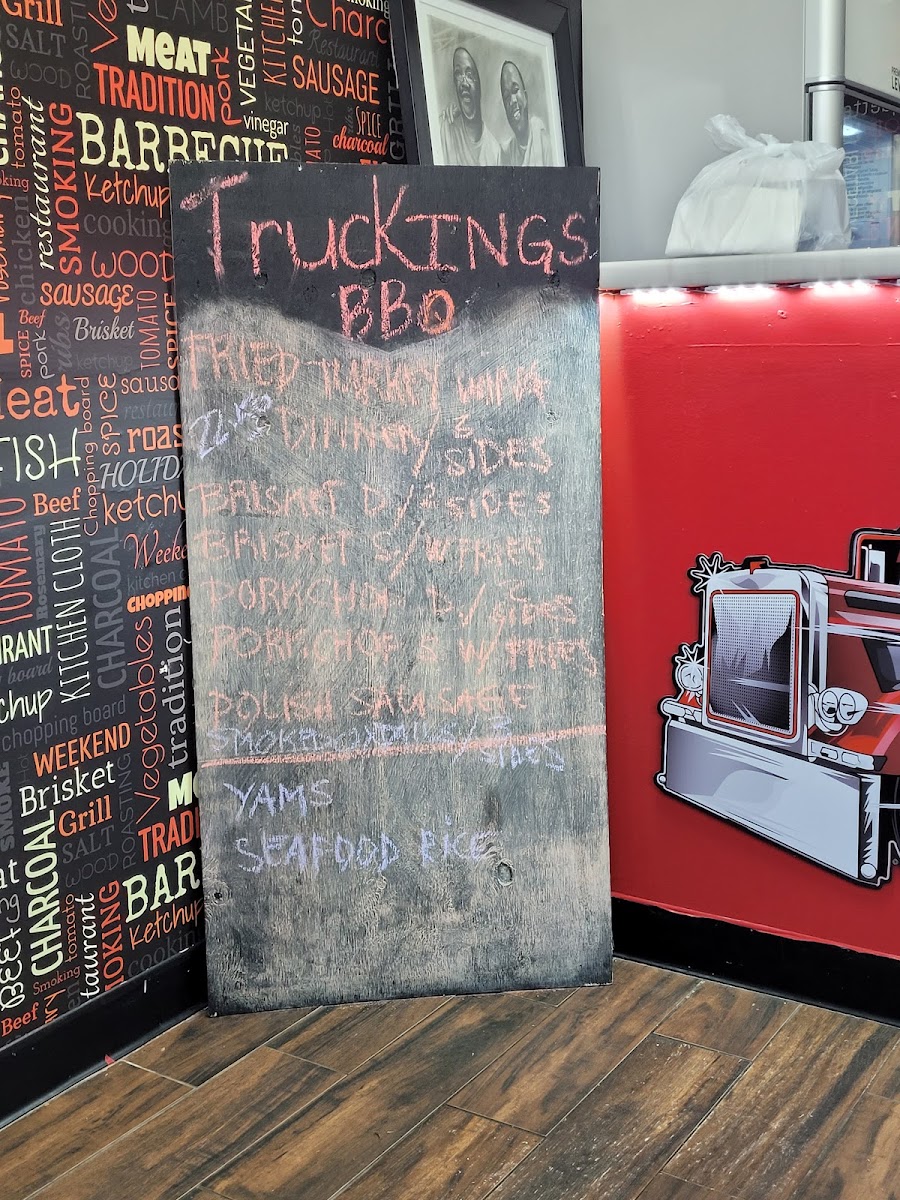 TruckINGS
BBQ
FRIED TURKEY WING
DINNER/ 2
SIDES
BRISKET D/ 2 SIDES
BRISKET S/ W FRIES
PORKCHOP D/ 2 SIDES
PORKCHOP S W/ FRIES
POLISH SAUSAGE
SMOKED
SIDES
YAMS
SEAFOOD RICE
Grill
LAMB
SALT
MEAT
TRADITION
pork
VEGETA
KITCHEN
Charc
Restaurant
SAUSAGE
ketchup
vinegar
SPICE
charcoal
BARBECUE
tomato
restaurant
SMOKING
Ketchup
cooking
chicken
WOOD
SAUSAGE
TOMATO
SPICE
Beef
Brisket
pork
ribs
ketchup
eat
Chopping board
SPICE
sausa
restau
FISH
roas
HOLIDA
Beef
ketchu
TOMATO
Rosemary
KITCHEN CLOTH
CHARCOAL
Weeke
kitchen
CHOPPING
RANT
board
chup
chopping board
Vegetables
tradition
WEEKEND
Brisket
SMOKE
Grill
SALT
ROASTING
WOOD
M
TRADI
CHARCOAL
BAR
Ketchup
cooking
BEEF
Smoking
tomato
taurant
MOKING
Beef